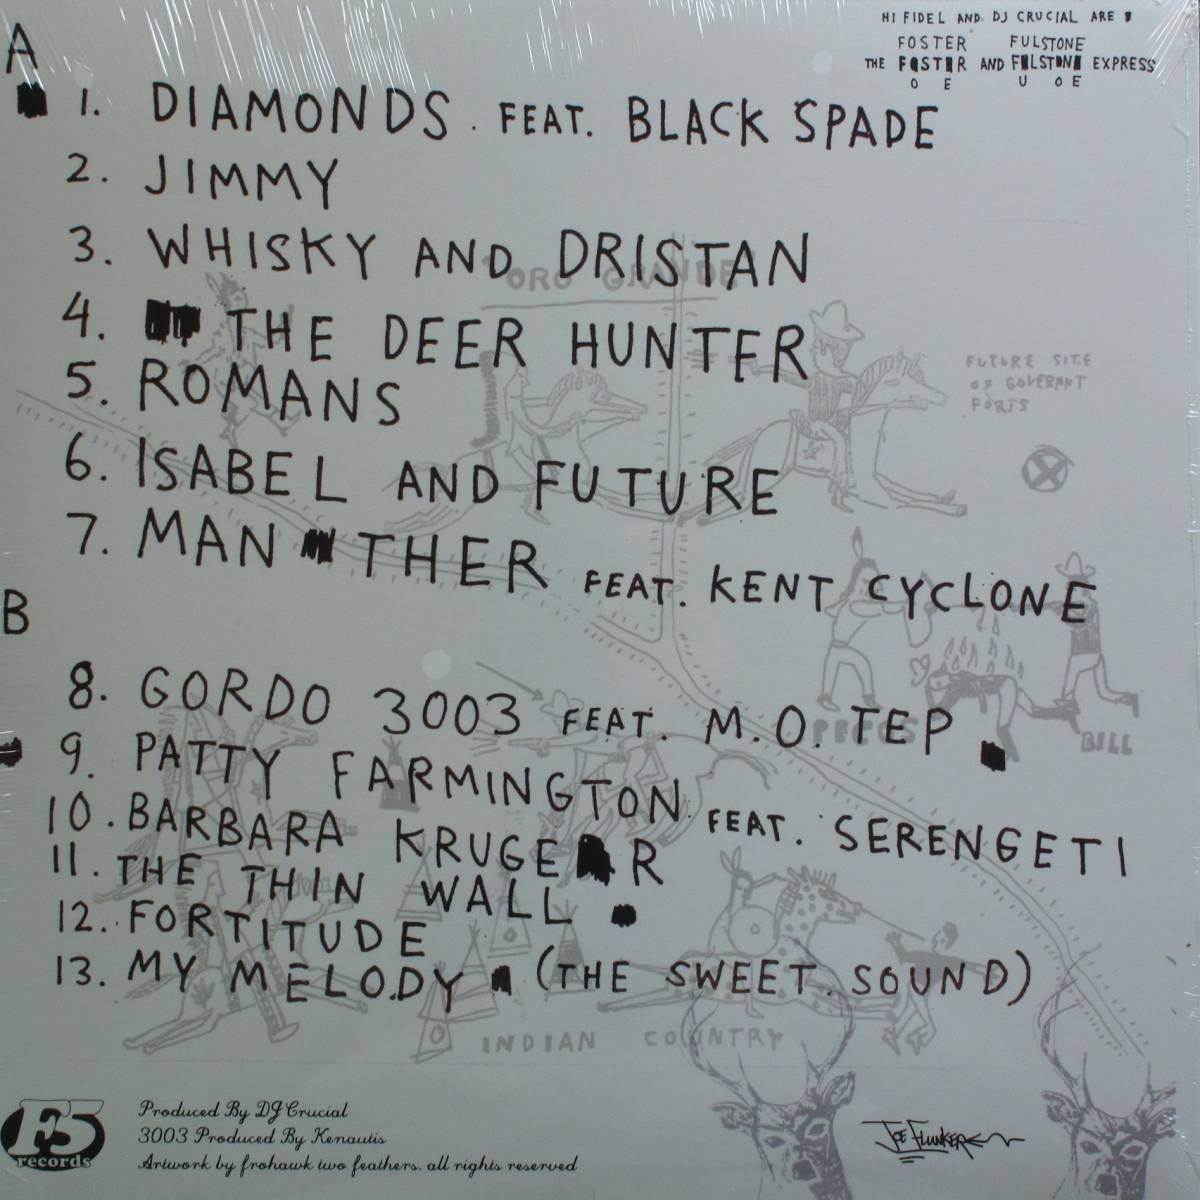 HI FIDEL AND DJ CRUCIAL ARE
FOSTER FULSTONE
THE FOSTER AND FULSTONE EXPRESS
O E U O E
A
1. DIAMONDS FEAT. BLACK SPADE
2. JIMMY
3. WHISKY AND DRISTAN
"ORO GRANDE"
4. THE DEER HUNTER
FUTURE SITE
OF GOVERANT
FORTS
5. ROMANS
6. ISABEL AND FUTURE
7. MAN THER FEAT. KENT CYCLONE
B
8. GORDO 3003 FEAT. M.O. TEP
PECOS BILL
9. PATTY FARMINGTON FEAT. SERENGETI
10. BARBARA KRUGE R
11. THE THIN WALL
12. FORTITUDE
13. MY MELODY (THE SWEET SOUND)
INDIAN COUNTRY
F5
records
Produced By DJ Crucial
3003 Produced By Kenautis
Artwork by frohawk two feathers. all rights reserved